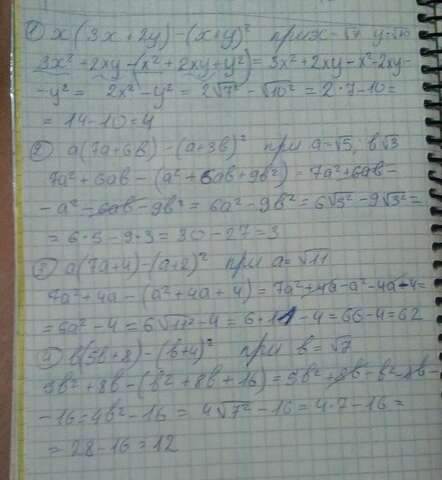 1) x(3x+2y)-(x+y)² при x-√7 y-√10
3x²+2xy-(x²+2xy+y²)=3x²+2xy-x²-2xy-
-y²= 2x²-y²=2√7²-√10²=2·7-10=
=14-10=4
2) a(7a+6b)-(a+3b)² при a-√5, b√3
7a²+6ab-(a²+6ab+9b²)=7a²+6ab-
-a²-6ab-9b²=6a²-9b²=6√5²-9√3²=
=6·5-9·3=30-27=3
3) a(7a+4)-(a+2)² при a=√11
7a²+4a-(a²+4a+4)=7a²+4a-a²-4a-4=
=6a²-4=6√11²-4=6·11-4=66-4=62
4) b(5b+8)-(b+4)² при b=√7
5b²+8b-(b²+8b+16)=5b²+8b-b²-8b-
-16=4b²-16=4√7²-16=4·7-16=
=28-16=12